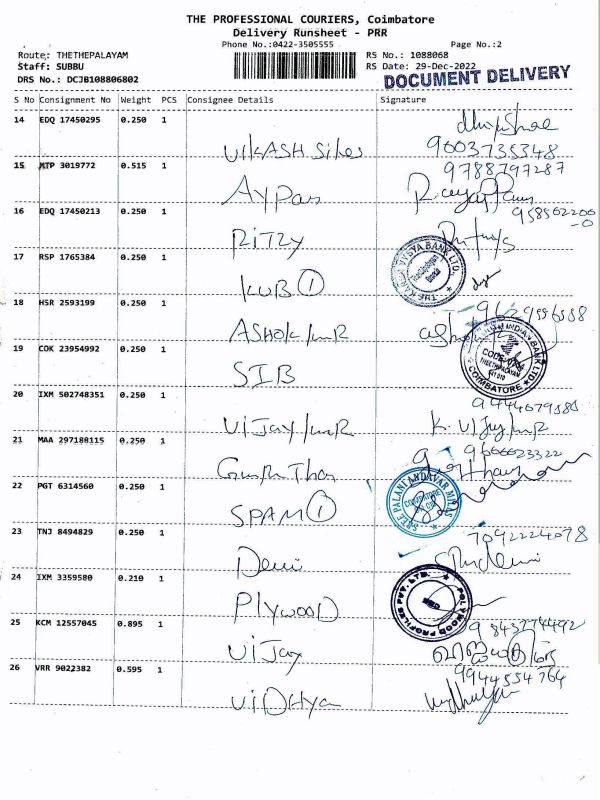 THE PROFESSIONAL COURIERS, Coimbatore
Delivery Runsheet - PRR
Phone No.:0422-3505555 Page No.:2
Route: THETHEPALAYAM RS No.: 1088068
Staff: SUBBU RS Date: 29-Dec-2022
DRS No.: DCJB108806802 DOCUMENT DELIVERY
S No Consignment No Weight PCS Consignee Details Signature
14 EDQ 17450295 0.250 1
VIKASH 9603735348
15 MTP 3019772 0.515 1 9788797287
16 EDQ 17450213 0.250 1
RITZY
17 RSP 1765384 0.250 1 THE KARUR VYSYA BANK LTD.
KVB 1
18 HSR 2593199 0.250 1
ASHOK/MR
19 COK 23954992 0.250 1 SOUTH INDIAN BANK LTD
SIB COIMBATORE
20 IXM 502748351 0.250 1
VIJAY/MR K. VIJAY/MR
21 MAA 297188115 0.250 1 9666623322
22 PGT 6314560 0.250 1 SREE PALANI ANDAVAR MILLS
SPAM 1
23 TNJ 8494829 0.250 1 7092224078
Devi
24 IXM 3359580 0.210 1 PLYWOOD PROFILES PVT. LTD.
PLYWOOD
25 KCM 12557045 0.895 1 9843774492
VIJAY
26 VRR 9022382 0.595 1 9944554764
VIDHYA